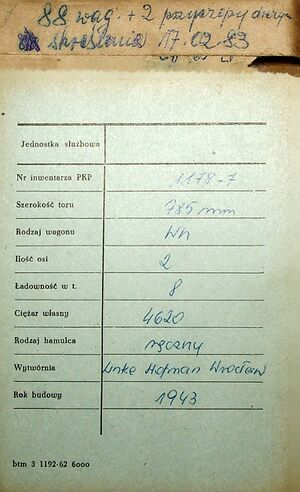 88 wag. + 2 przyczepy
skreślenia 17.02.83
Jednostka służbowa
Nr inwentarza PKP 1178-7
Szerokość toru 785 mm
Rodzaj wagonu Wn
Ilość osi 2
Ładowność w t. 8
Ciężar własny 4620
Rodzaj hamulca ręczny
Wytwórnia Linke Hofman Wrocław
Rok budowy 1943
btm 3 1192-62 6000